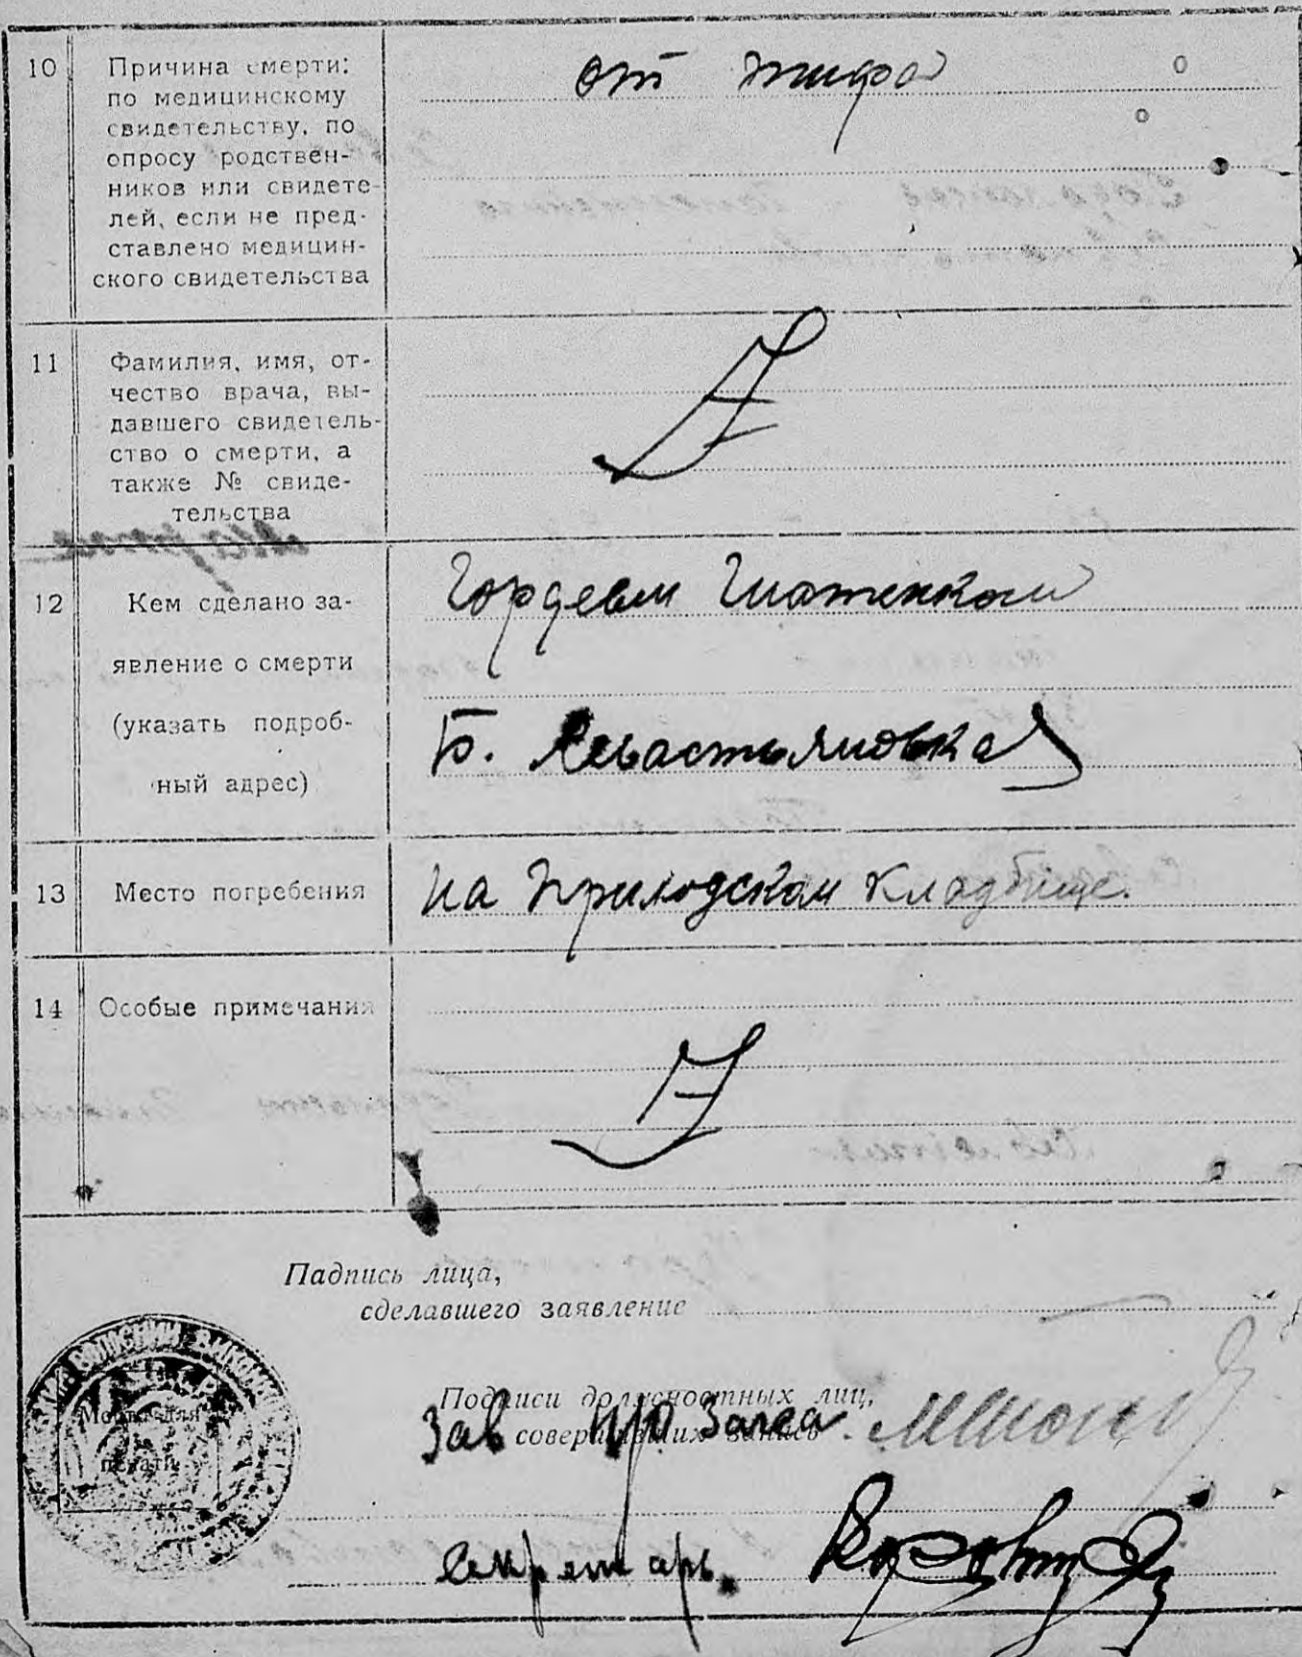 10
Причина смерти:
по медицинскому
свидетельству, по
опросу родствен-
ников или свидете-
лей, если не пред-
ставлено медицин-
ского свидетельства
от тифа
11
Фамилия, имя, от-
чество врача, вы-
давшего свидетель-
ство о смерти, а
также № свиде-
тельства
12
Кем сделано за-
явление о смерти
(указать подроб-
ный адрес)
Гордеем
Б. Севастьяновка
13
Место погребения
на Приходском кладбище.
14
Особые примечания
Падпись лица,
сделавшего заявление
Подписи должностных лиц,
совершивших запись
Зав Загса
Место для
печати
Секретарь